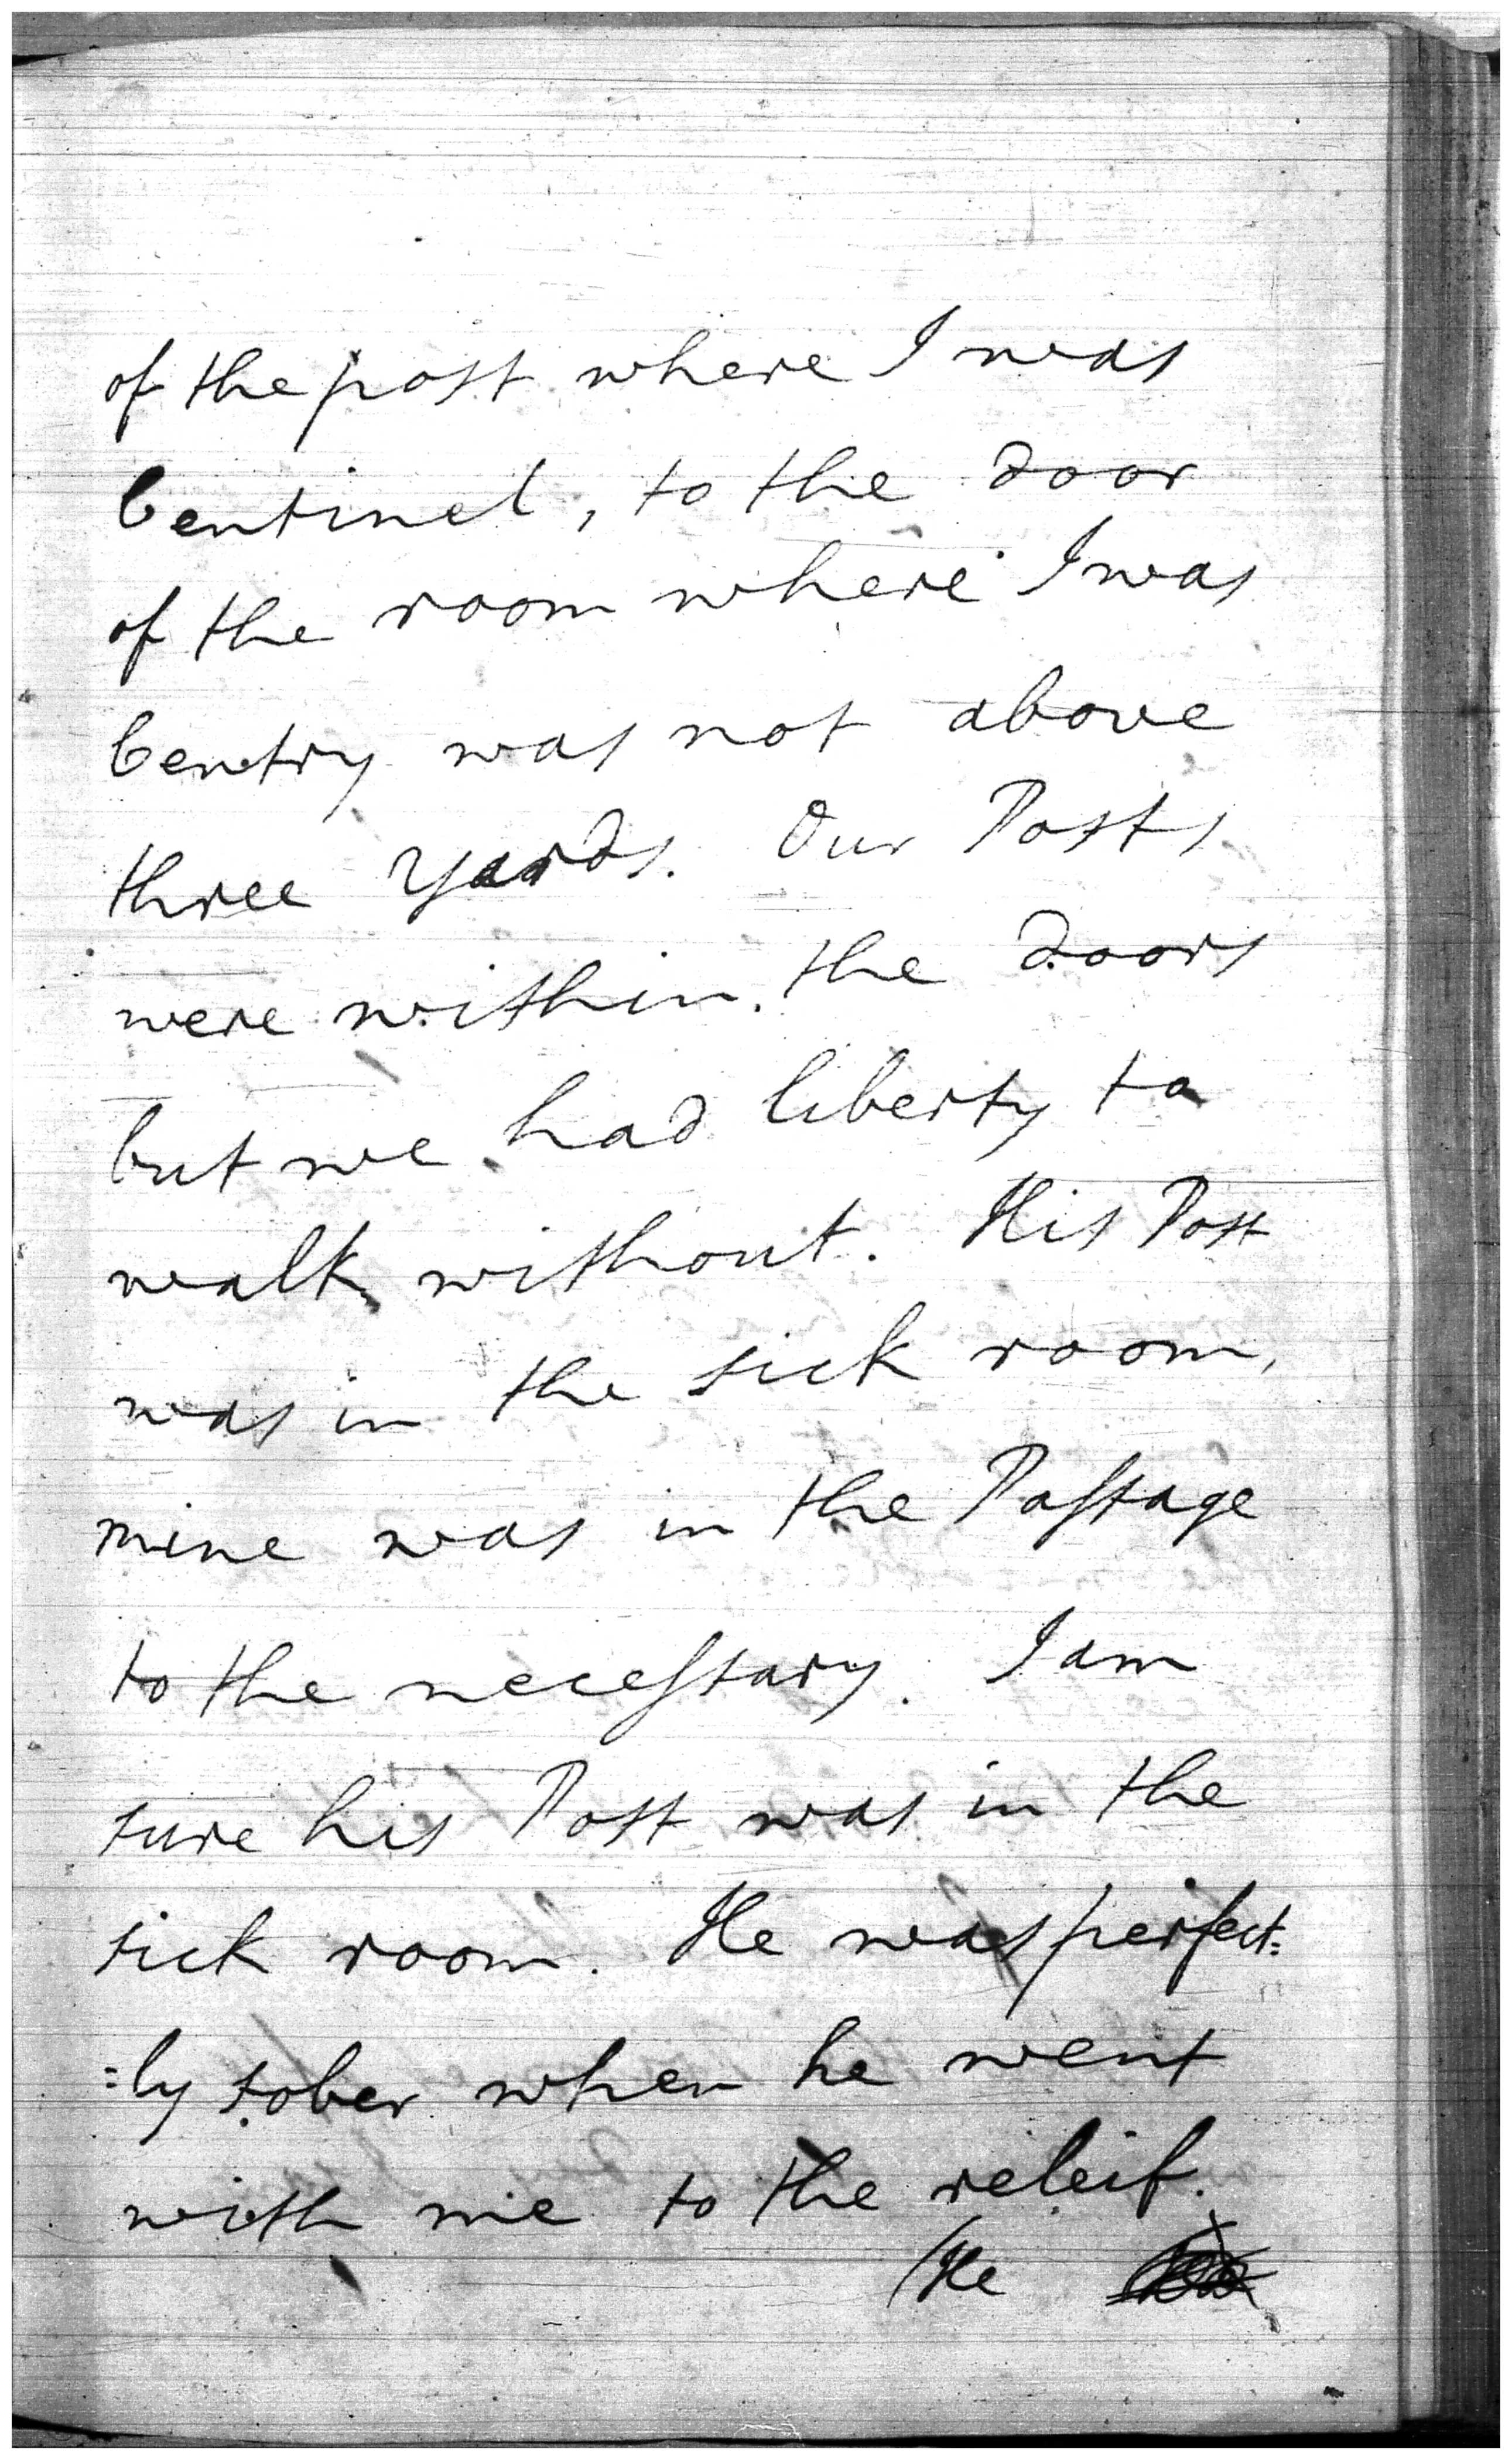 of the post where I was
Centinel, to the door
of the room where I was
Centry was not above
three Yards. Our Posts
were within the doors
but we had liberty to
walk without. His Post
was in the sick room,
mine was in the Passage
to the necessary. I am
sure his Post was in the
sick room. He was perfect=
=ly sober when he went
with me to the releif.
(He